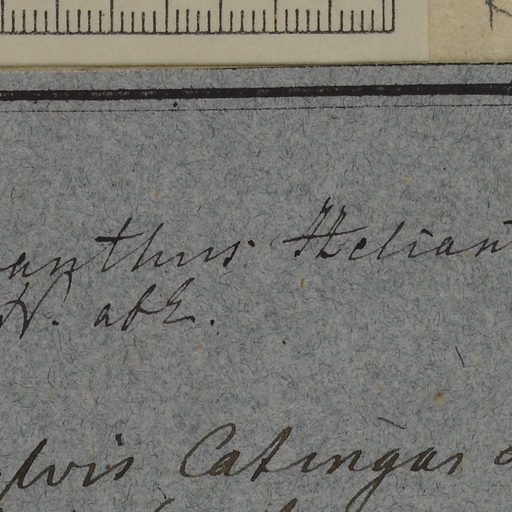 anthus: Heliant
N. abE.
ylvis Catingas